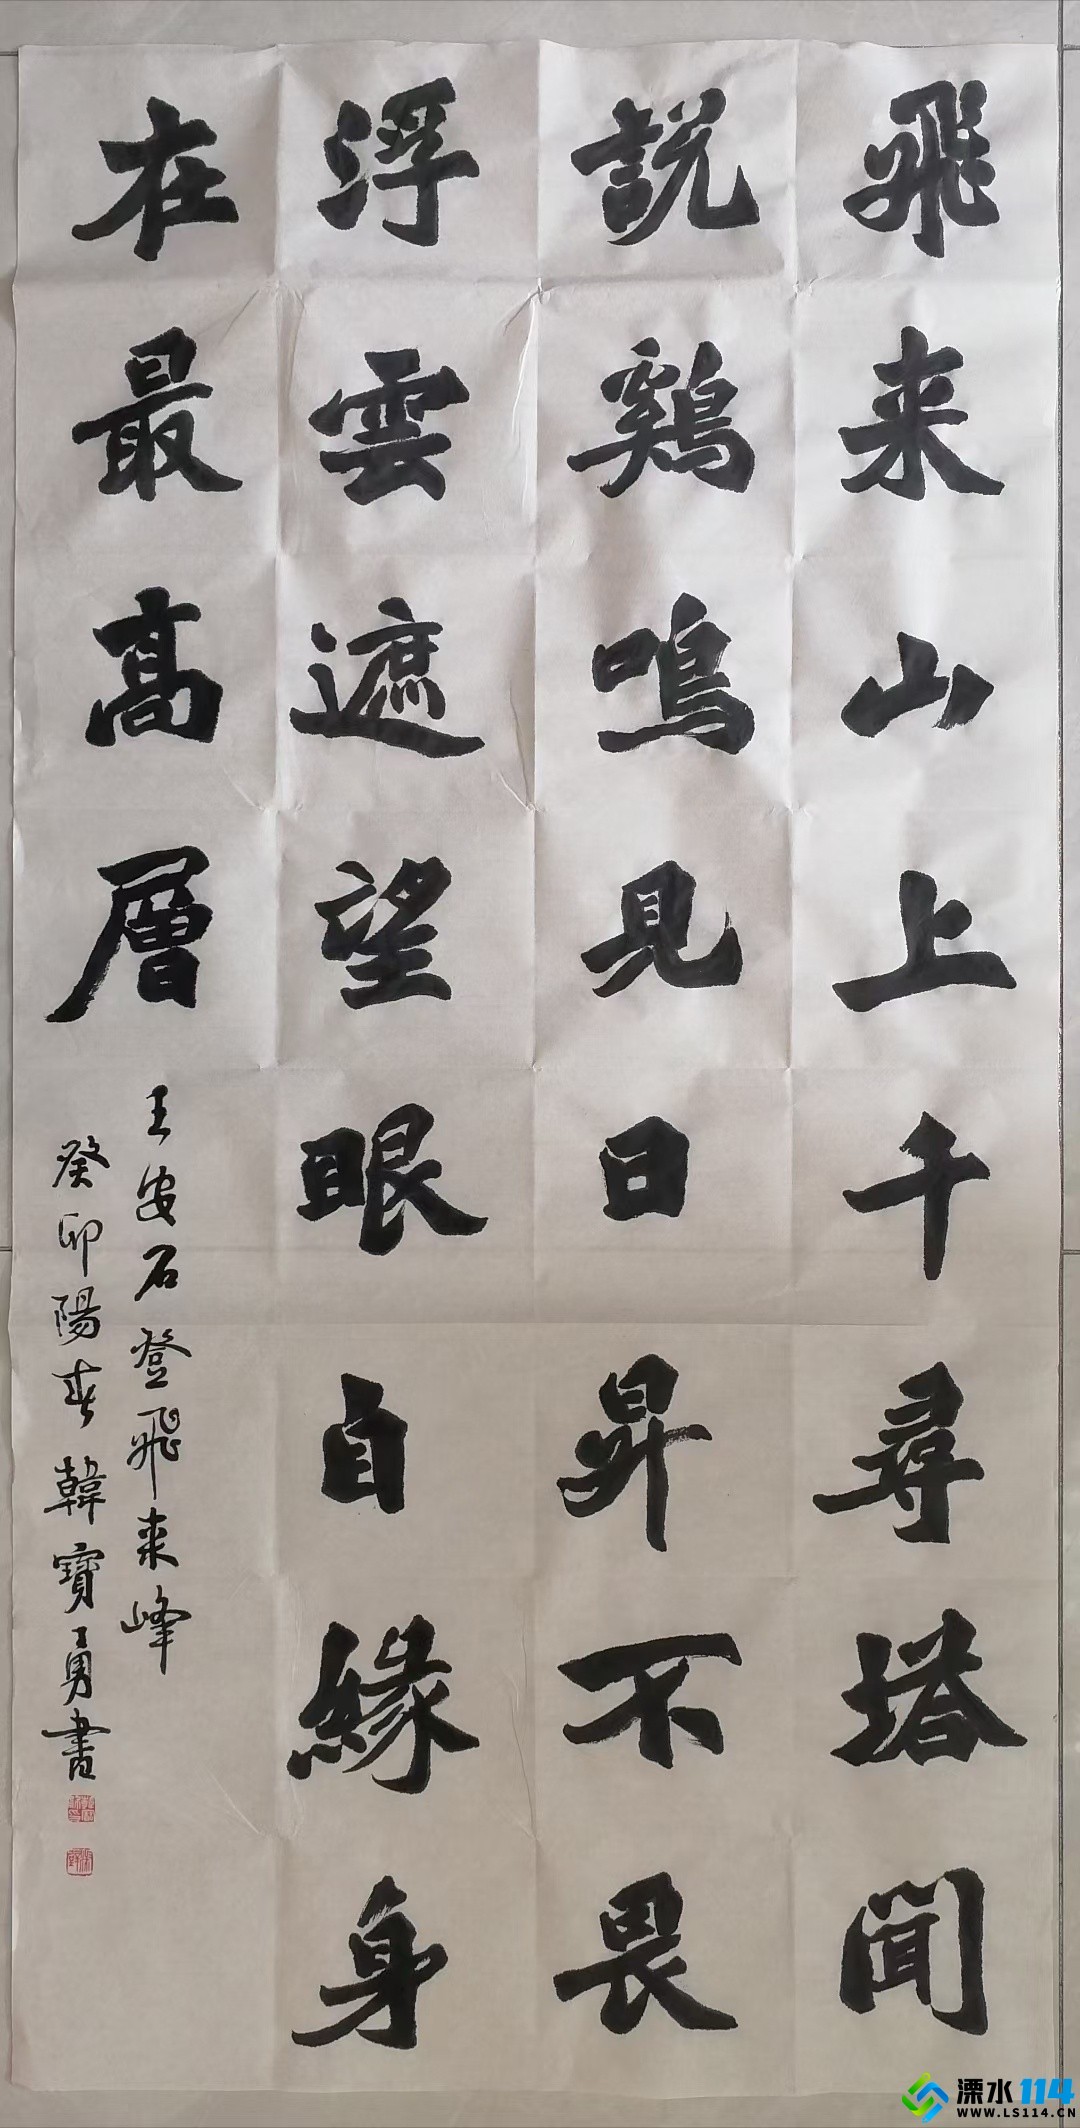 飛来山上千尋塔聞
説鷄鳴見日昇不畏
浮雲遮望眼自緣身
在最高層
王安石登飛来峰
癸卯陽春韓寶勇書
溧水114
WWW.LS114.CN